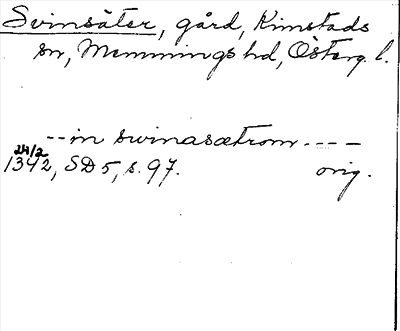 Svinsäter, gård, Kimstads
sn, Memmings hd, Österg. l.
--in swinasætrom ----
24/2
1342, SD 5, s. 97. orig.